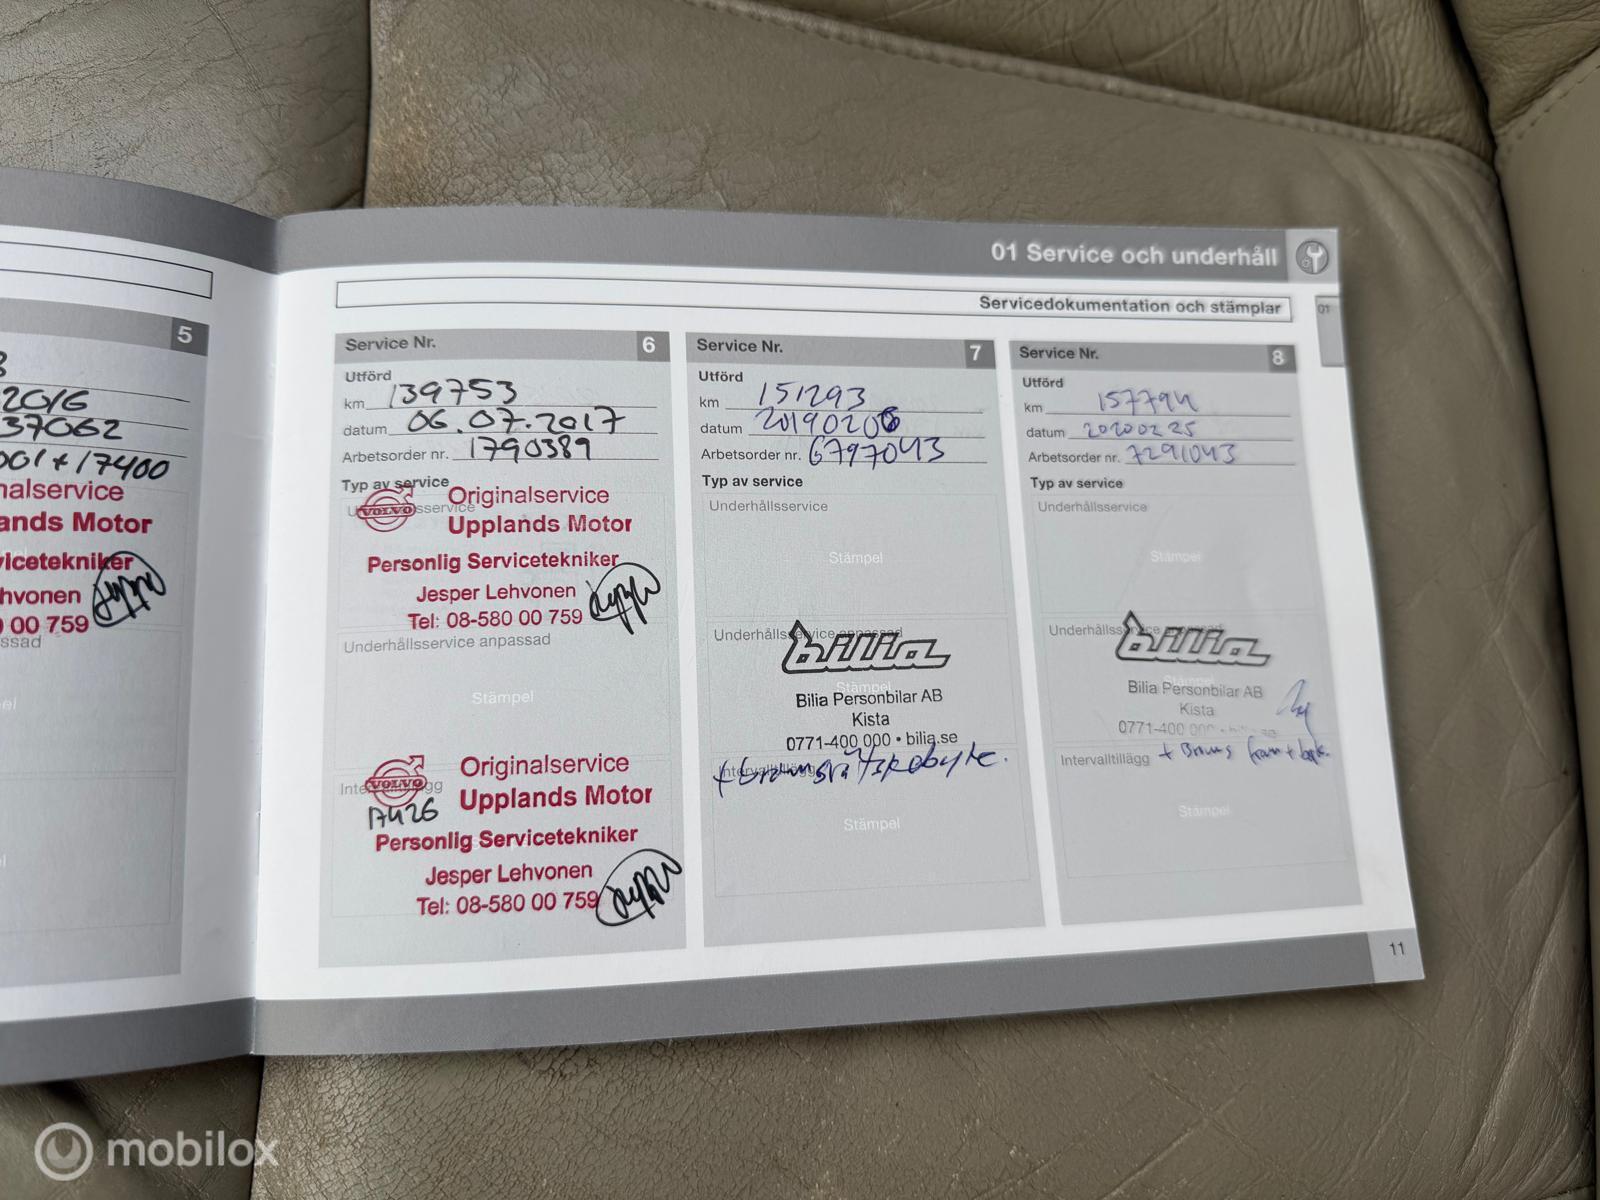 01 Service och underhåll
Servicedokumentation och stämplar
01
5
2016
37062
001+17400
nalservice
ands Motor
vicetekniker
hvonen
00 759
ssad
Service Nr. 6
Utförd
km 139753
datum 06.07.2017
Arbetsorder nr. 1790389
Typ av service
VOLVO
Originalservice
Upplands Motor
Personlig Servicetekniker
Jesper Lehvonen
Tel: 08-580 00 759
Underhållsservice anpassad
Stämpel
VOLVO
Originalservice
Upplands Motor
17426
Personlig Servicetekniker
Jesper Lehvonen
Tel: 08-580 00 759
Service Nr. 7
Utförd
km 151293
datum 20190206
Arbetsorder nr. 6797043
Typ av service
Underhållsservice
Stämpel
Underhållsservice anpassad
bilia
Stämpel
Bilia Personbilar AB
Kista
0771-400 000 • bilia.se
Intervalltillägg
+ bromsvätskebyte.
Stämpel
Service Nr. 8
Utförd
km 157794
datum 20200225
Arbetsorder nr. 7291043
Typ av service
Underhållsservice
Stämpel
Underhållsservice anpassad
bilia
Stämpel
Bilia Personbilar AB
Kista
0771-400 000
Intervalltillägg + Broms fram + bak.
Stämpel
11
mobilox